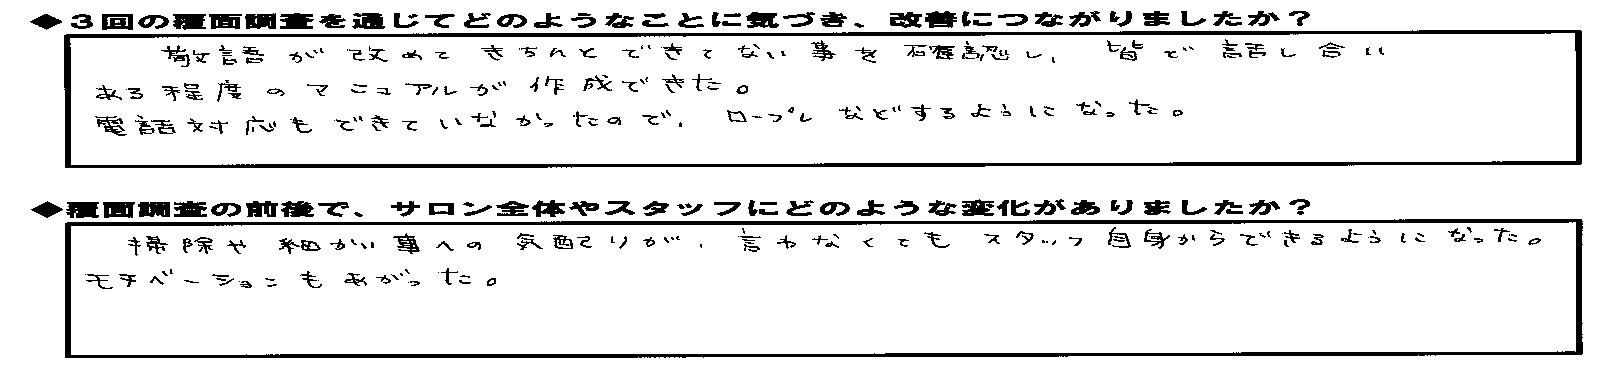 ◆３回の覆面調査を通じてどのようなことに気づき、改善につながりましたか？
敬語が改めてきちんとできてない事を確認し、皆で話し合い
ある程度のマニュアルが作成できた。
電話対応もできていなかったので、ロープレなどするようになった。
◆覆面調査の前後で、サロン全体やスタッフにどのような変化がありましたか？
掃除や細かい事への気配りが、言わなくてもスタッフ自身からできるようになった。
モチベーションもあがった。